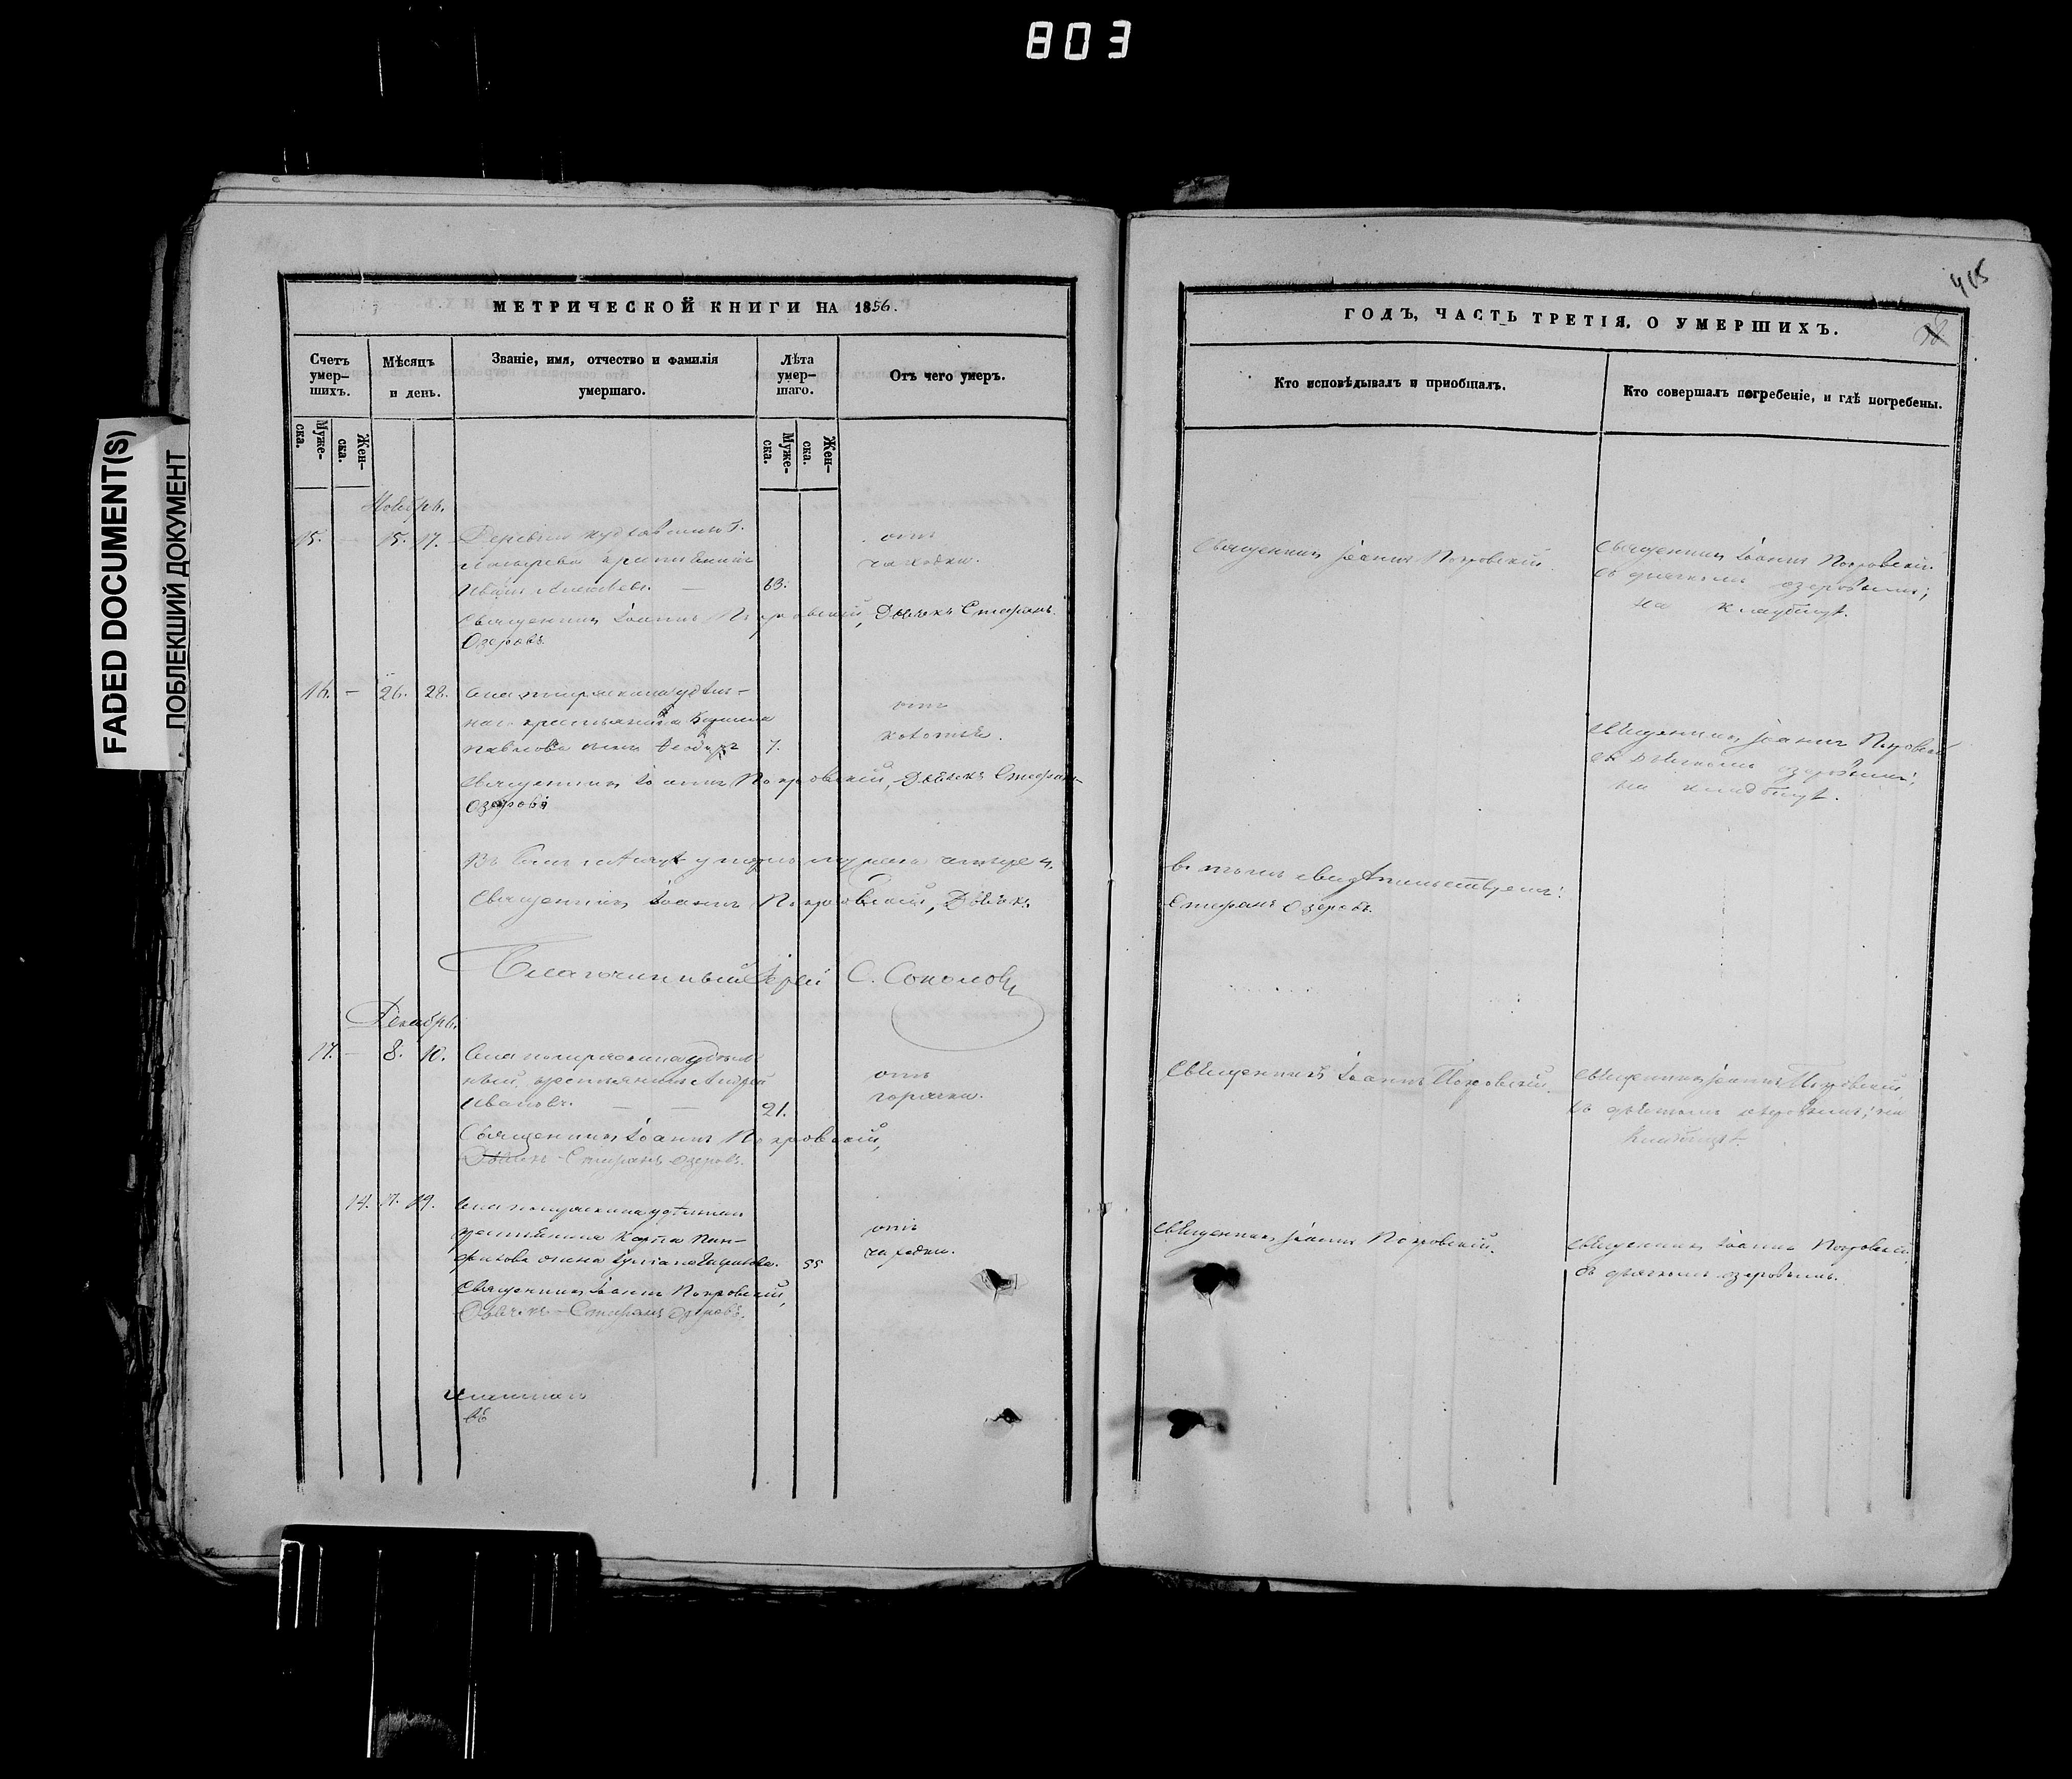 803
FADED DOCUMENT(S)
ПОБЛЕКШИЙ ДОКУМЕНТ
МЕТРИЧЕСКОЙ КНИГИ НА 1856.
Счетъ умер-шихъ.
Мѣсяцъ и день.
Званіе, имя, отчество и фамилія умершаго.
Лѣта умер-шаго.
Отъ чего умеръ.
Муже-ска.
Жен-ска.
Муже-ска.
Жен-ска.
Ноябрь.
15. - 15. 17. Деревни
крестьянинъ
Иванъ Алексѣевъ. — 63.
отъ
чахотки.
Священникъ Іоаннъ Покровскій, Дьячекъ Стефанъ
Озеровъ.
16. - 26. 28. Села удѣль-
наго крестьянина
Павлова сынъ Ѳеодоръ 7.
отъ
Священникъ Іоаннъ Покровскій, Дьячекъ Стефанъ
Озеровъ
Въ семъ мѣсяцѣ умерло мужеска четыре 4.
Священникъ Іоаннъ Покровскій, Дьячекъ
Благочинный Іерей С. Соколовъ
Декабрь.
17. - 8. 10. Села удѣль-
ный крестьянинъ Андрей
Ивановъ. — — 21.
отъ
горячки.
Священникъ Іоаннъ Покровскій,
Дьячекъ Стефанъ Озеровъ.
14. 17. 19. Села удѣльнаго
крестьянина Карпа Пан-
филова жена 55
отъ
чахотки.
Священникъ Іоаннъ Покровскій,
Дьячекъ Стефанъ Озеровъ.
415
ГОДЪ, ЧАСТЬ ТРЕТІЯ, О УМЕРШИХЪ.
Кто исповѣдывалъ и пріобщалъ.
Кто совершалъ погребеніе, и гдѣ погребены.
Священникъ Іоаннъ Покровскій.
Священникъ Іоаннъ Покровскій
съ дьячкомъ Озеровымъ;
на кладбищѣ.
Священникъ Іоаннъ Покровскій
съ дьячкомъ Озеровымъ;
на кладбищѣ.
въ томъ свидѣтельствуемъ:
Стефанъ Озеровъ.
Священникъ Іоаннъ Покровскій.
Священникъ Іоаннъ Покровскій
съ дьячкомъ Озеровымъ; на
кладбищѣ.
Священникъ Іоаннъ Покровскій.
Священникъ Іоаннъ Покровскій
съ дьячкомъ Озеровымъ.